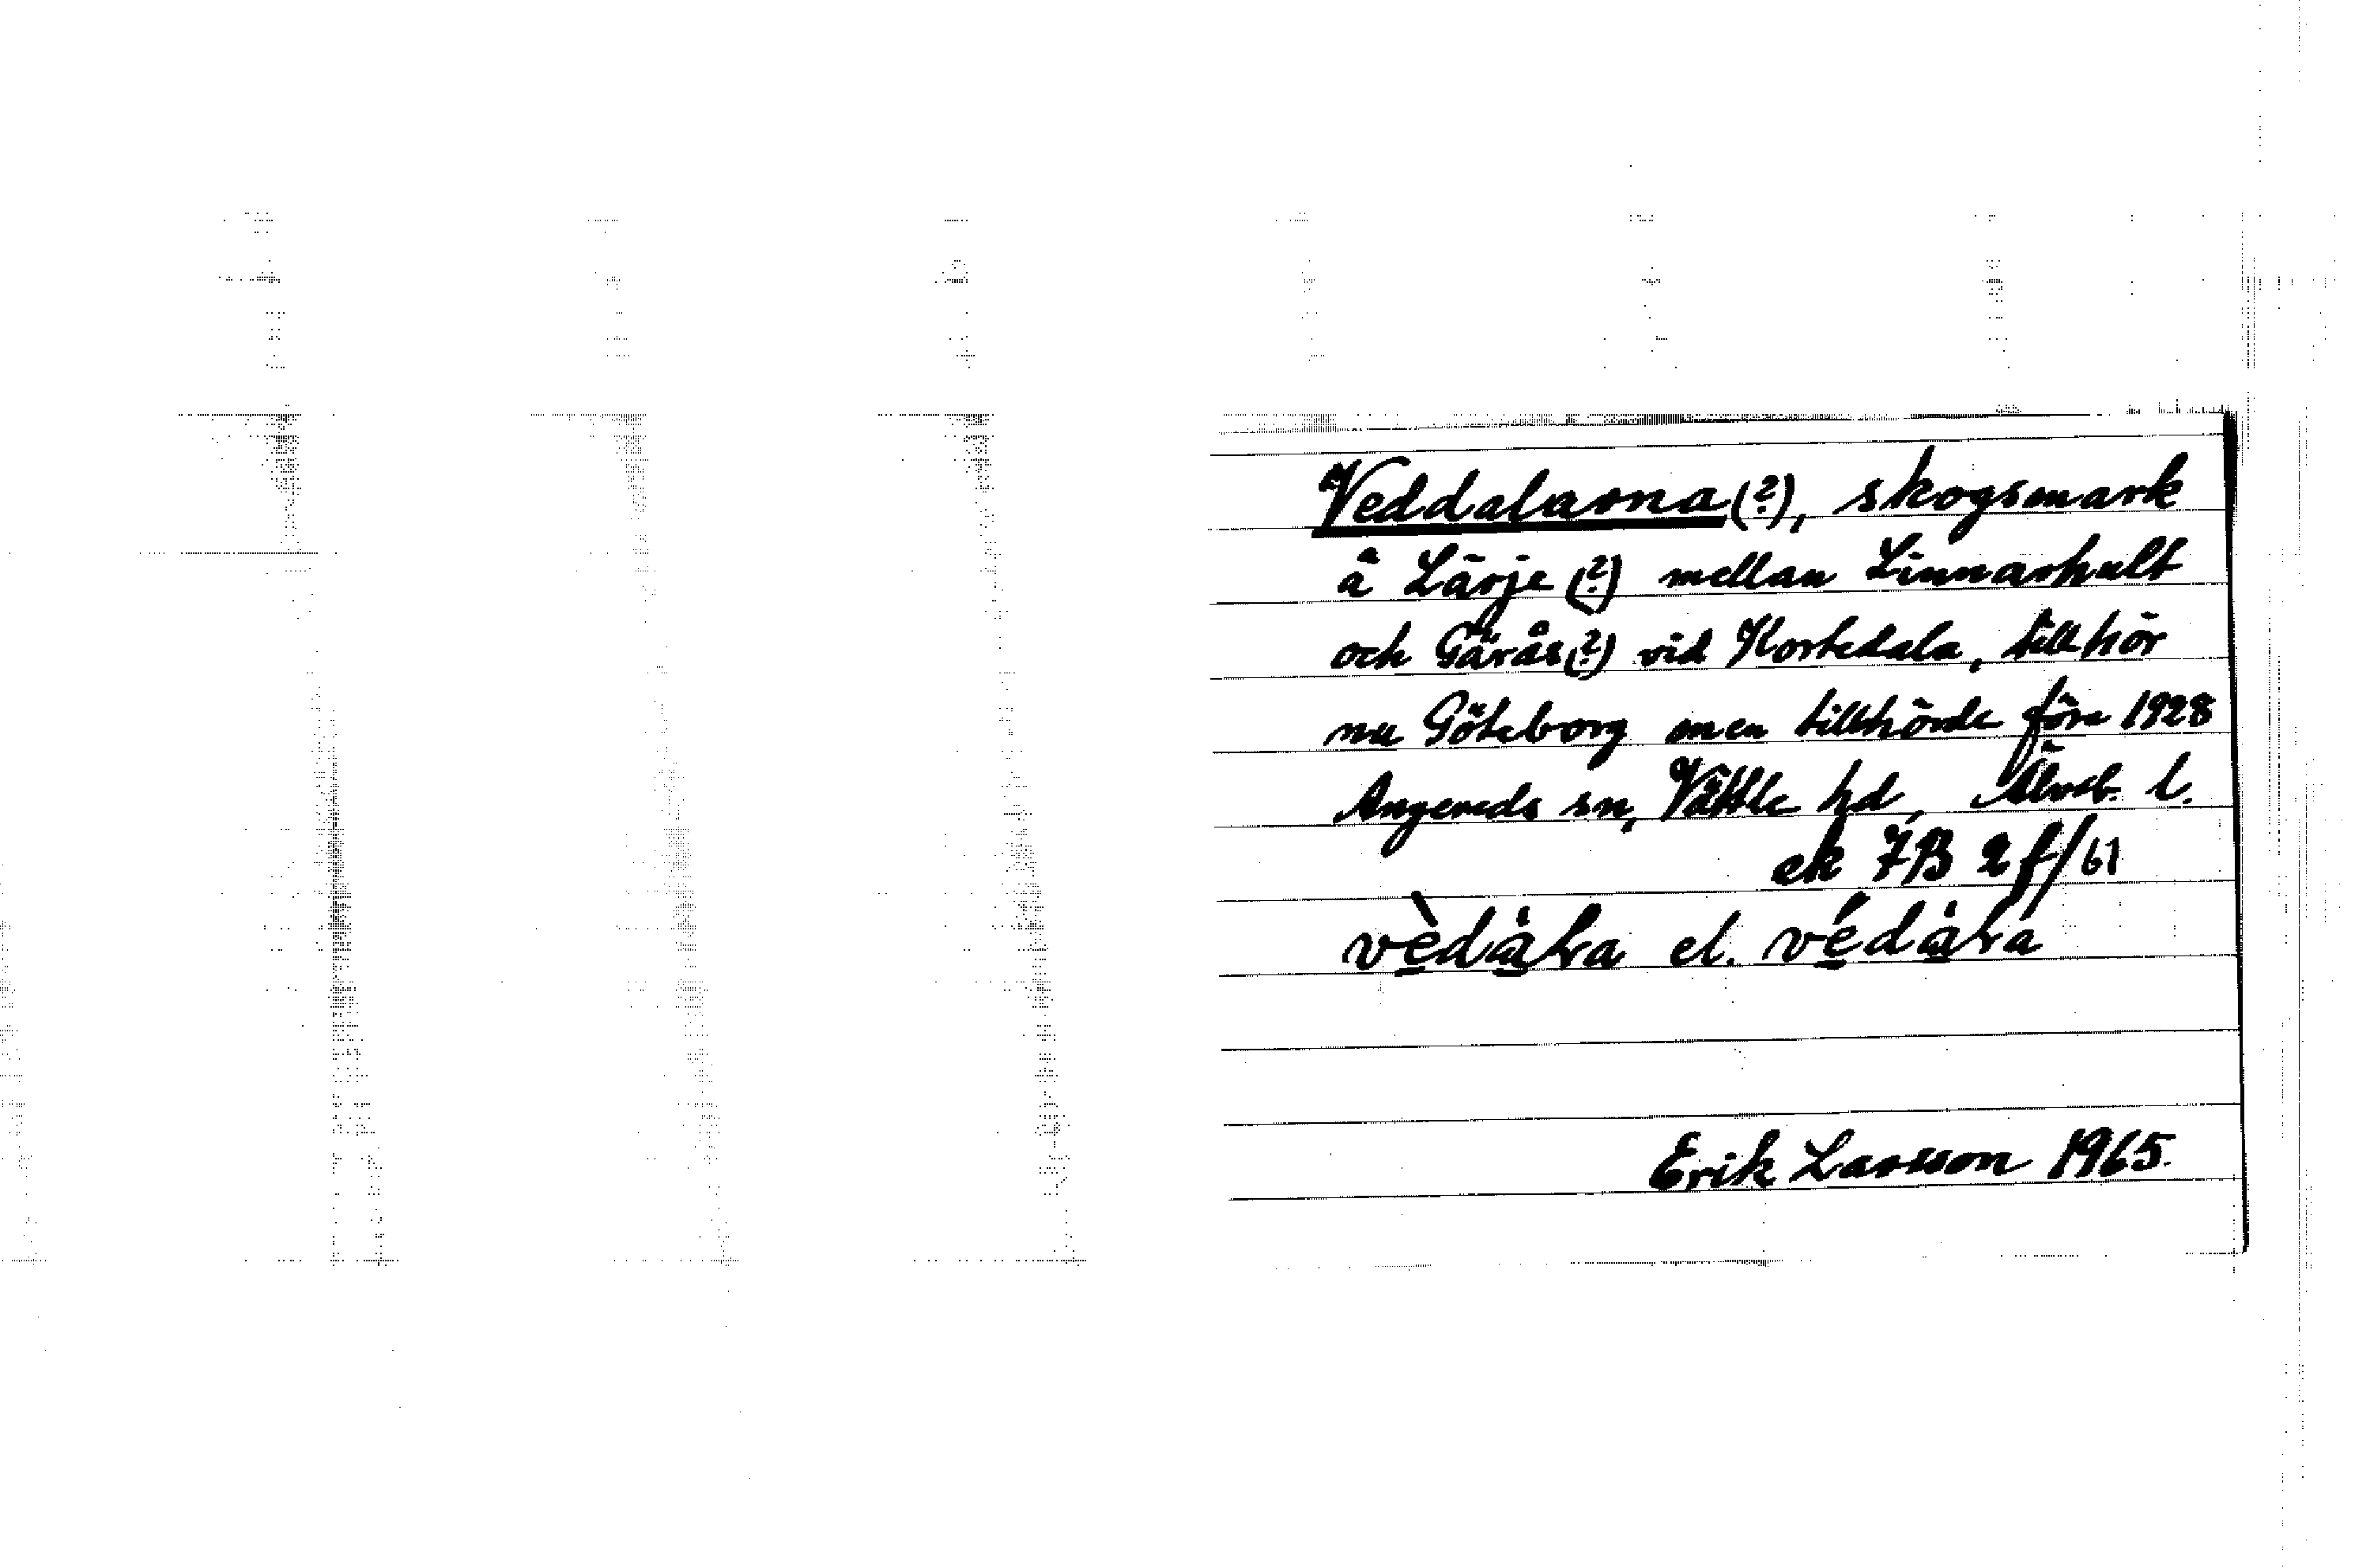 Veddalarna (?), skogsmark
å Lärje (?) mellan Linnarhult
och Gärås (?) vid Kortedala, tillhör
nu Göteborg men tillhörde före 1928
Angereds sn, Vättle hd, Älvsb. l.
ek 7B 2f/61
el.
Erik Larsson 1965.